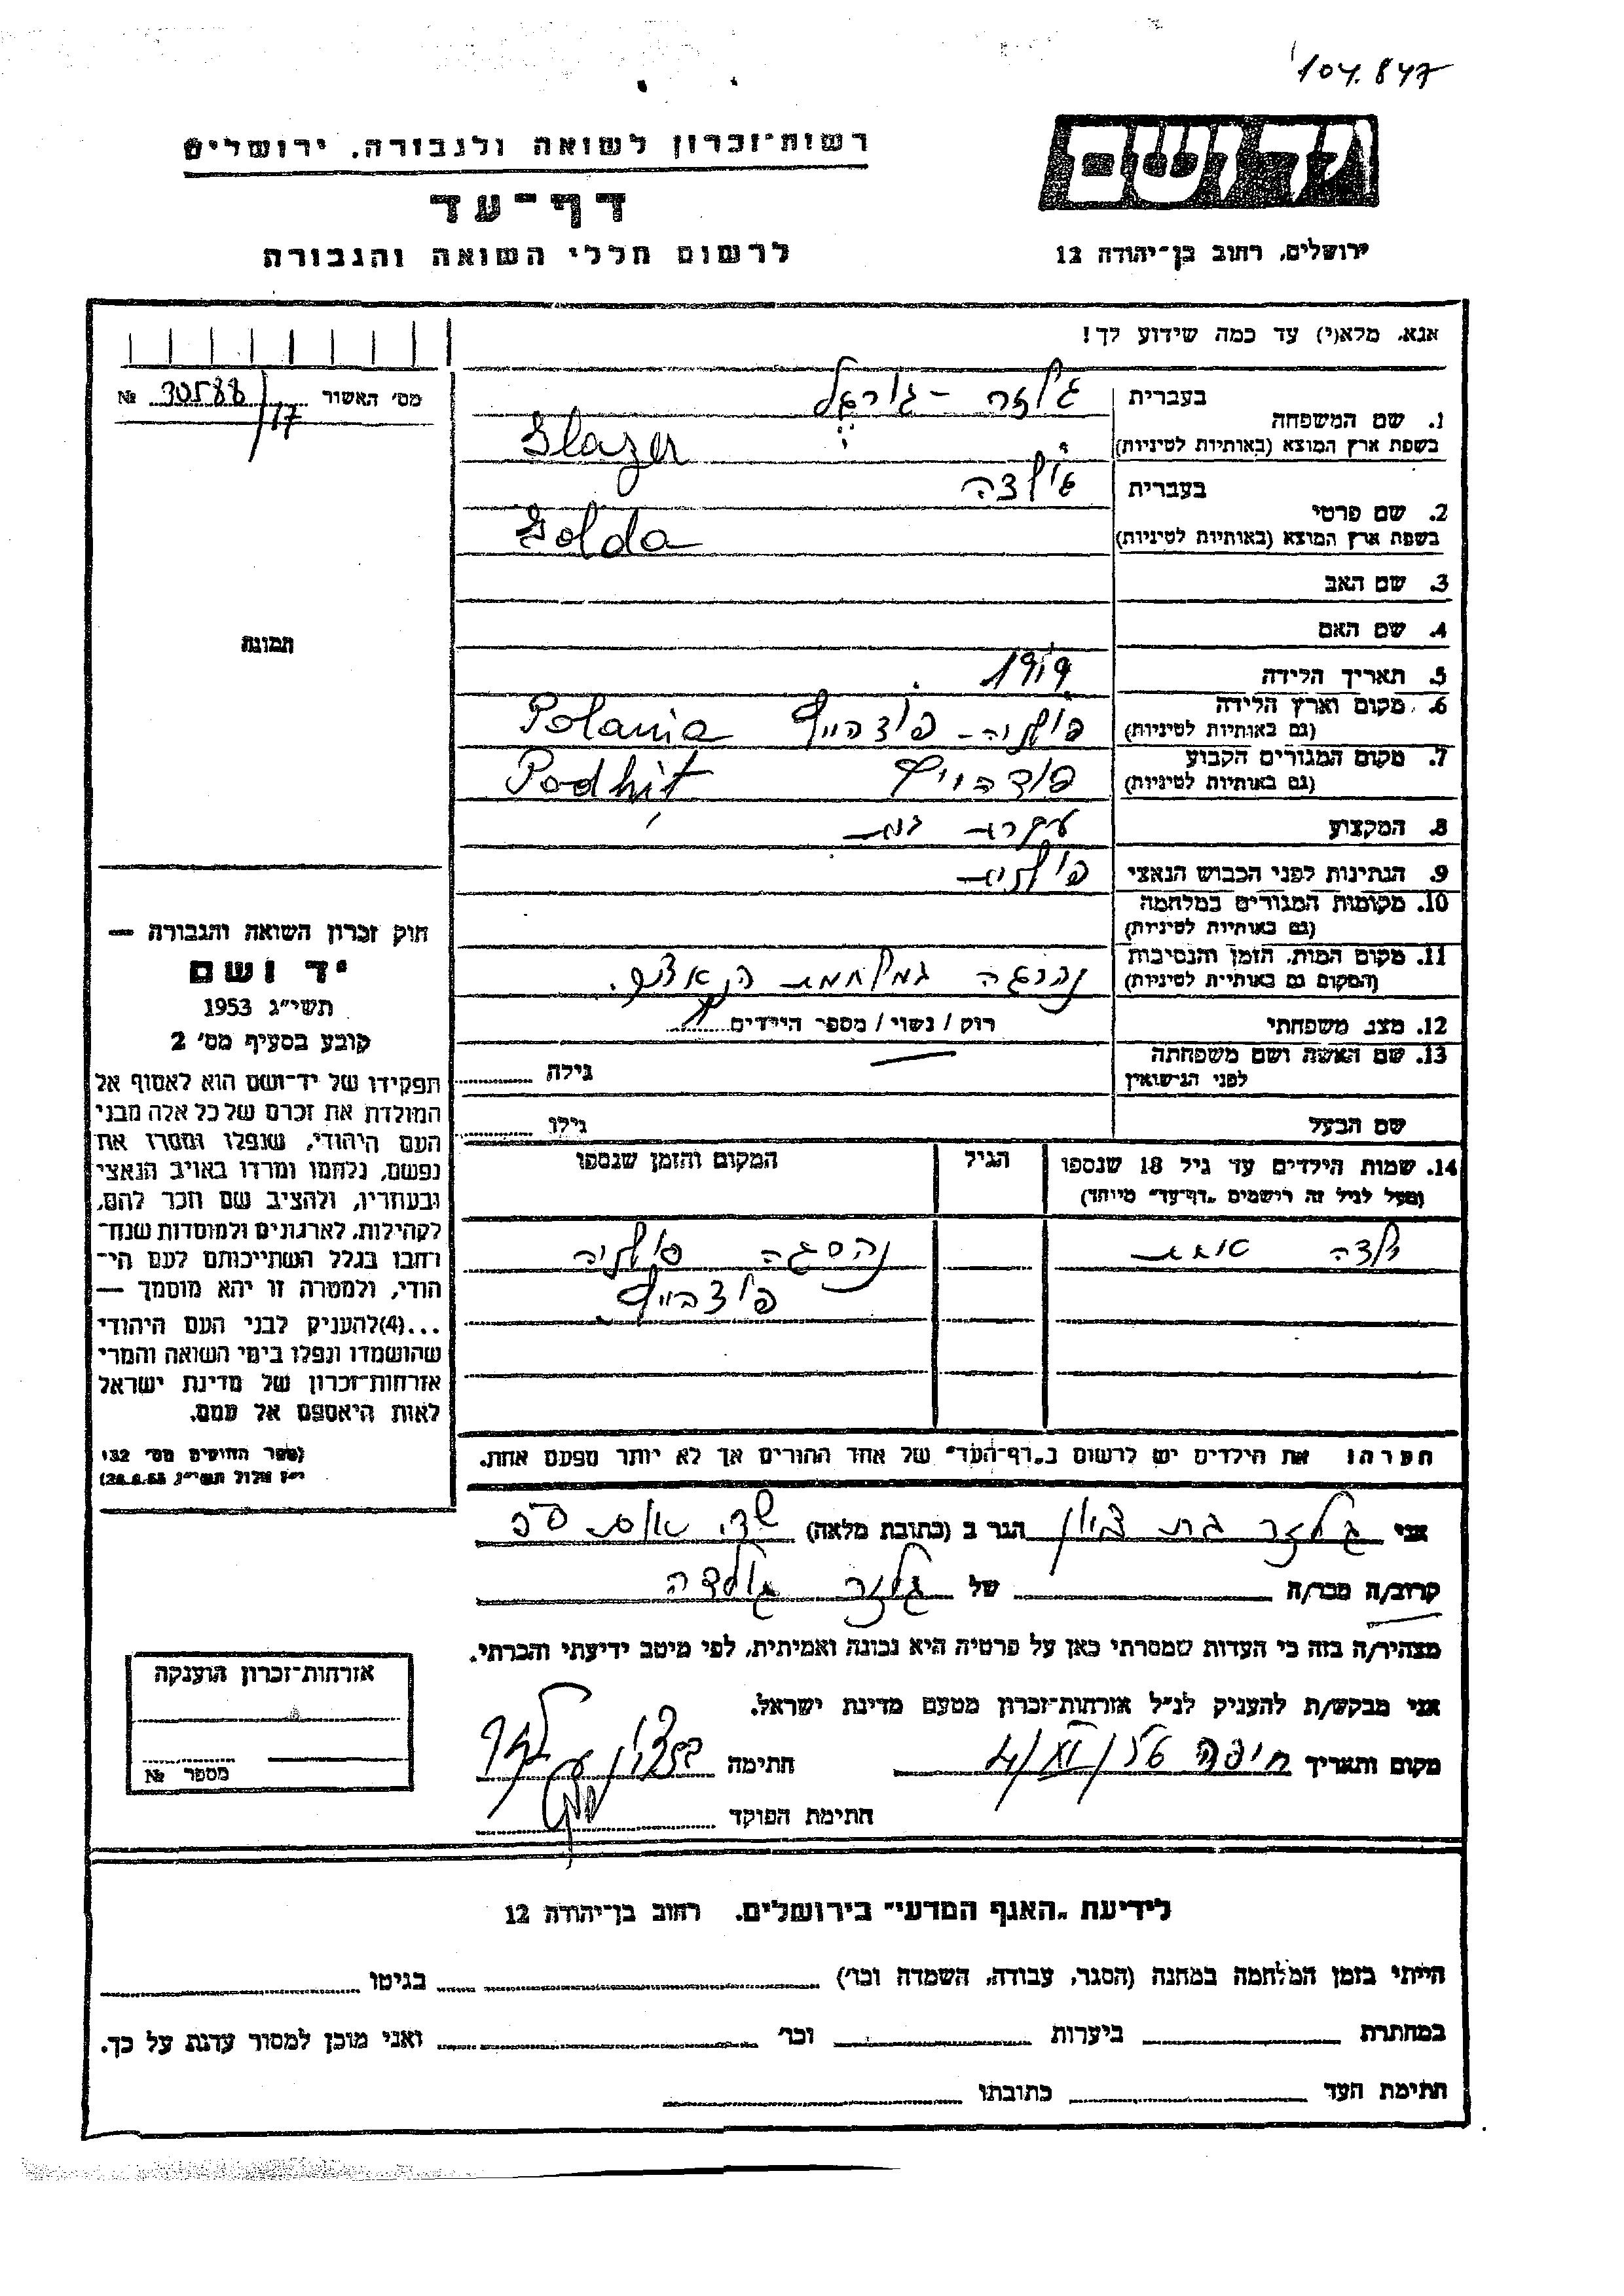 104.847
רשות־זכרון לשואה ולגבורה, ירושלים
יד ושם
דף־עד
לרשום חללי השואה והגבורה
ירושלים, רחוב בן־יהודה 12
אנא, מלא(י) עד כמה שידוע לך!
מס׳ האשור № 30588/17
1. שם המשפחה
בעברית גלזר -
בשפת ארץ המוצא (באותיות לטיניות) Glazer
2. שם פרטי
בעברית גולדה
בשפת ארץ המוצא (באותיות לטיניות) Golda
3. שם האב
4. שם האם
תמונה
5. תאריך הלידה 1919
6. מקום וארץ הלידה (גם באותיות לטיניות) פולניה - פודהייץ Polania
7. מקום המגורים הקבוע (גם באותיות לטיניות) פודהייץ Podhit
8. המקצוע עקרת בית
9. הנתינות לפני הכבוש הנאצי פולניה
10. מקומות המגורים במלחמה (גם באותיות לטיניות)
11. מקום המות, הזמן והנסיבות (המקום גם באותיות לטיניות) נהרגה במלחמת הנאצים.
12. מצב משפחתי רוק / נשוי / מספר הילדים 1
13. שם האשה ושם משפחתה לפני הנישואין גילה
שם הבעל גילו
14. שמות הילדים עד גיל 18 שנספו
(מעל לגיל זה רישמים „דף־עד״ מיוחד)
הגיל
המקום והזמן שנספו
ילדה אחת נהרגה פולניה
פודהייץ
הערה: את הילדים יש לרשום ב„דף־העד״ של אחד ההורים אך לא יותר מפעם אחת.
חוק זכרון השואה והגבורה —
יד ושם
תשי״ג 1953
קובע בסעיף מס׳ 2
תפקידו של יד־ושם הוא לאסוף אל
המולדת את זכרם של כל אלה מבני
העם היהודי, שנפלו ומסרו את
נפשם, נלחמו ומרדו באויב הנאצי
ובעוזריו, ולהציב שם וזכר להם,
לקהילות, לארגונים ולמוסדות שנח־
רבו בגלל השתייכותם לעם הי־
הודי, ולמטרה זו יהא מוסמך —
...(4)להעניק לבני העם היהודי
שהושמדו ונפלו בימי השואה והמרי
אזרחות־זכרון של מדינת ישראל
לאות היאספם אל עמם.
(ספר החוקים מס׳ 132
י״ז אלול תשי״ג 28.8.53)
אני גלזר בת ציון הגר ב (כתובת מלאה)
קרוב/ה מכר/ה של גלזר גולדה
מצהיר/ה בזה כי העדות שמסרתי כאן על פרטיה היא נכונה ואמיתית, לפי מיטב ידיעתי והכרתי.
אני מבקש/ת להעניק לנ״ל אזרחות־זכרון מטעם מדינת ישראל.
מקום ותאריך חיפה חתימה
חתימת הפוקד
אזרחות־זכרון הוענקה
מספר №
לידיעת „האגף המדעי״ בירושלים. רחוב בן־יהודה 12
הייתי בזמן המלחמה במחנה (הסגר, עבודה, השמדה וכו׳) בגיטו
במחתרת ביערות וכו׳ ואני מוכן למסור עדות על כך.
חתימת העד כתובתו